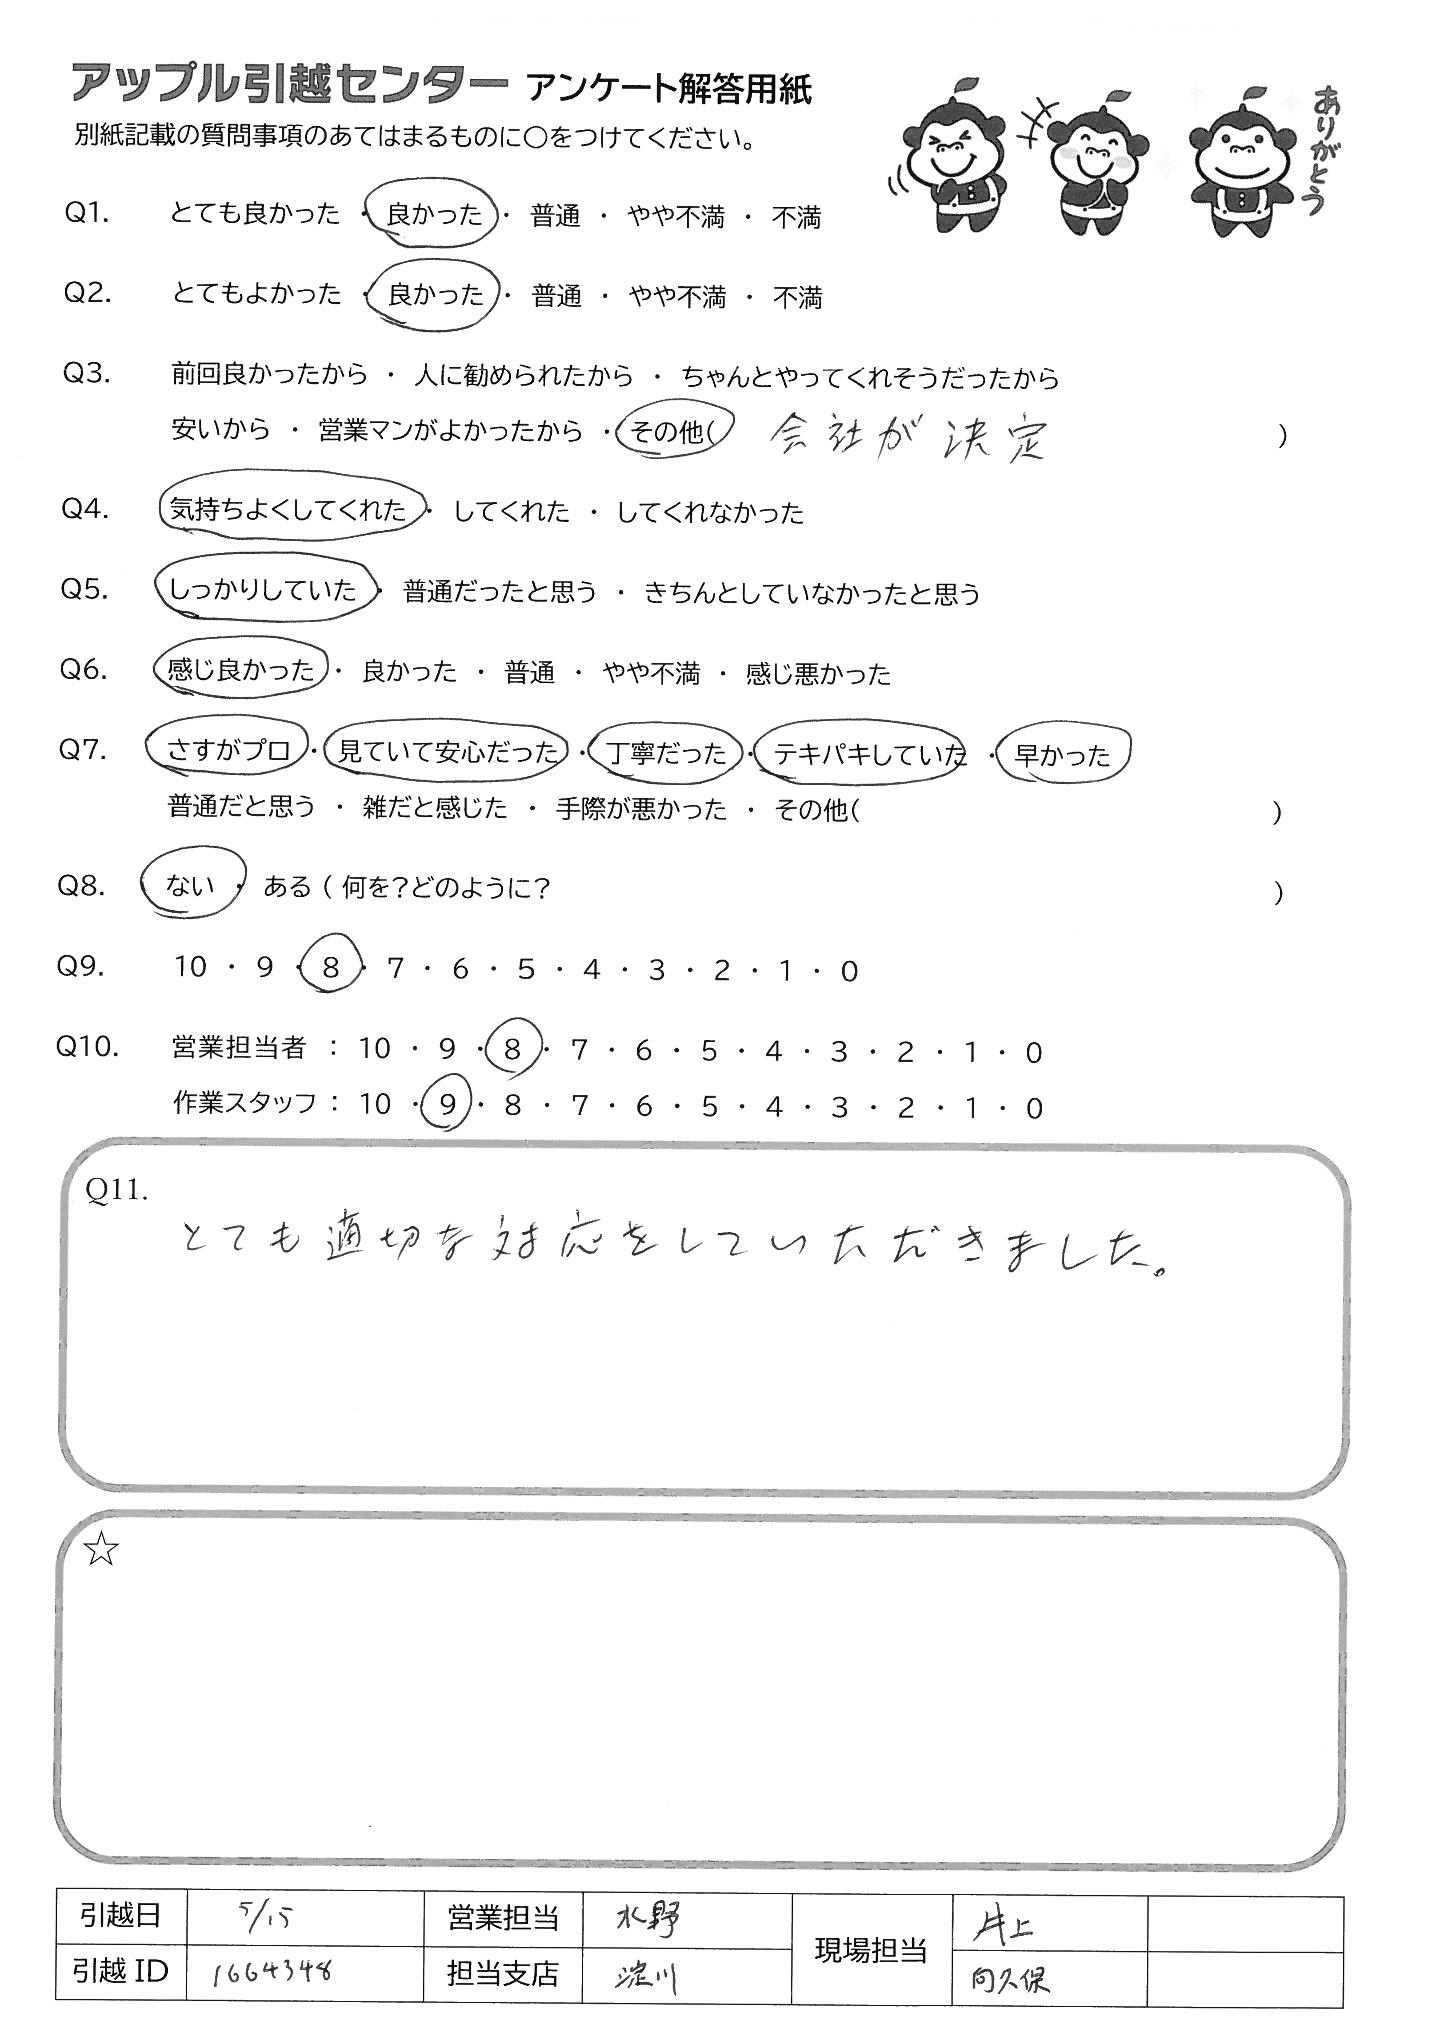 アップル引越センター アンケート解答用紙
別紙記載の質問事項のあてはまるものに○をつけてください。
ありがとう
Q1. とても良かった ・ 良かった ・ 普通 ・ やや不満 ・ 不満
Q2. とてもよかった ・ 良かった ・ 普通 ・ やや不満 ・ 不満
Q3. 前回良かったから ・ 人に勧められたから ・ ちゃんとやってくれそうだったから
安いから ・ 営業マンがよかったから ・ その他( 会社が決定 )
Q4. 気持ちよくしてくれた ・ してくれた ・ してくれなかった
Q5. しっかりしていた ・ 普通だったと思う ・ きちんとしていなかったと思う
Q6. 感じ良かった ・ 良かった ・ 普通 ・ やや不満 ・ 感じ悪かった
Q7. さすがプロ ・ 見ていて安心だった ・ 丁寧だった ・ テキパキしていた ・ 早かった
普通だと思う ・ 雑だと感じた ・ 手際が悪かった ・ その他( )
Q8. ない ・ ある ( 何を?どのように? )
Q9. 10 ・ 9 ・ 8 ・ 7 ・ 6 ・ 5 ・ 4 ・ 3 ・ 2 ・ 1 ・ 0
Q10. 営業担当者 : 10 ・ 9 ・ 8 ・ 7 ・ 6 ・ 5 ・ 4 ・ 3 ・ 2 ・ 1 ・ 0
作業スタッフ : 10 ・ 9 ・ 8 ・ 7 ・ 6 ・ 5 ・ 4 ・ 3 ・ 2 ・ 1 ・ 0
Q11.
とても適切な対応をしていただきました。
☆
引越日 5/15 営業担当 水野 現場担当 井上
引越ID 1664348 担当支店 淀川 向久保